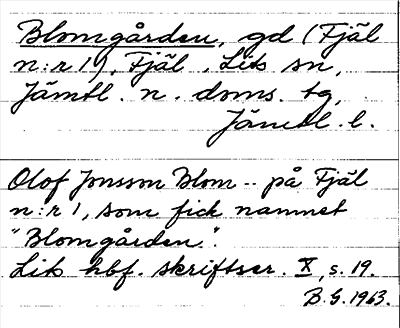 Blomgården, gd (Fjäl
n:r 1), Fjäl, Lits sn,
Jämtl. n. doms. tg,
Jämtl. l.
Olof Jonsson Blom -- på Fjäl
n:r 1, som fick namnet
"Blomgården".
Lits hbf. skriftser. X, s. 19.
B.G. 1963.